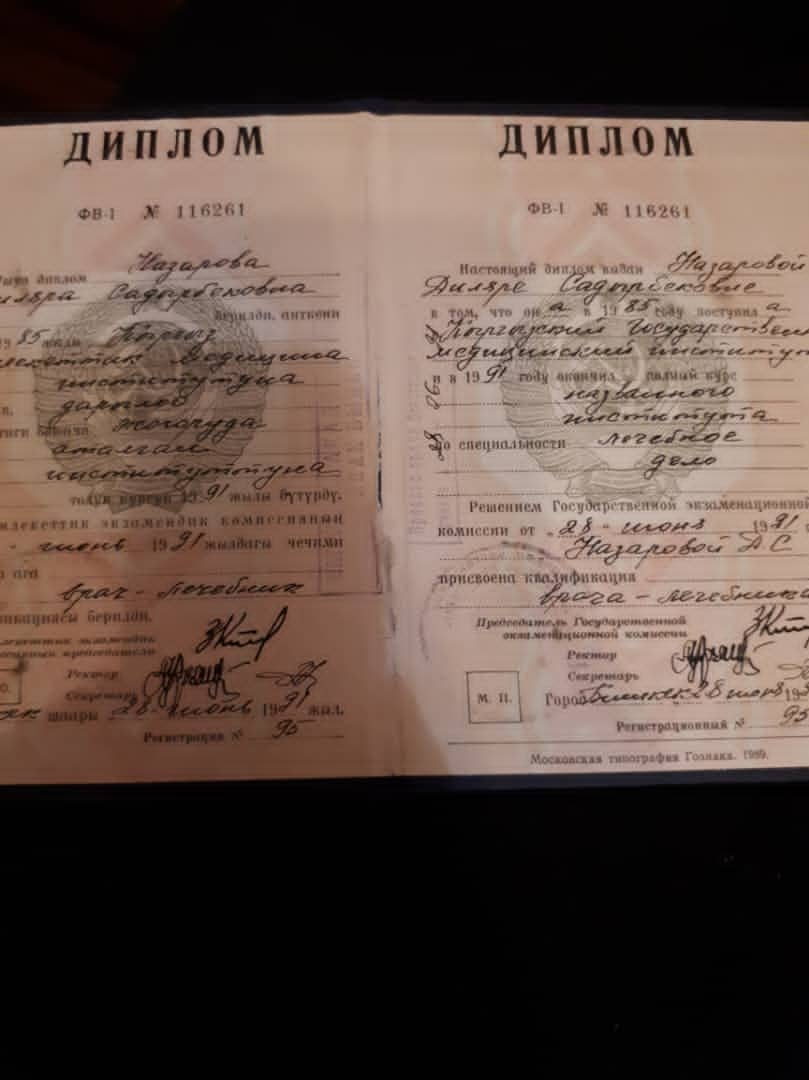 ДИПЛОМ
ФВ-I № 116261
диплом Назарова
Садырбековна
берилди, анткени
1985 жылы Кыргыз
Медицина
институтуна
жогоруда
аталган
институттуна
толук курсун 1991 жылы бүтүрдү.
экзамендик комиссиянын
июнь 1991 жылдагы чечими
ага
врач-лечебник
берилди.
Ректор
Секретарь
шаары 28 июнь 1991 жыл.
Регистрация № 95
ДИПЛОМ
ФВ-I № 116261
Настоящий диплом выдан Назаровой
Диляре Садырбековне
в том, что она в 1985 году поступила
Киргизский Государствен
медицинский институт
и в 1991 году окончила полный курс
названного
института
по специальности лечебное
дело
Решением Государственной экзаменационной
комиссии от „28“ июня 1991
Назаровой Д.С
присвоена квалификация
врача-лечебника
Председатель Государственной
экзаменационной комиссии
Ректор
Секретарь
М. П.
Город Бишкек 28 июня 19
Регистрационный № 95
Московская типография Гознака. 1989.